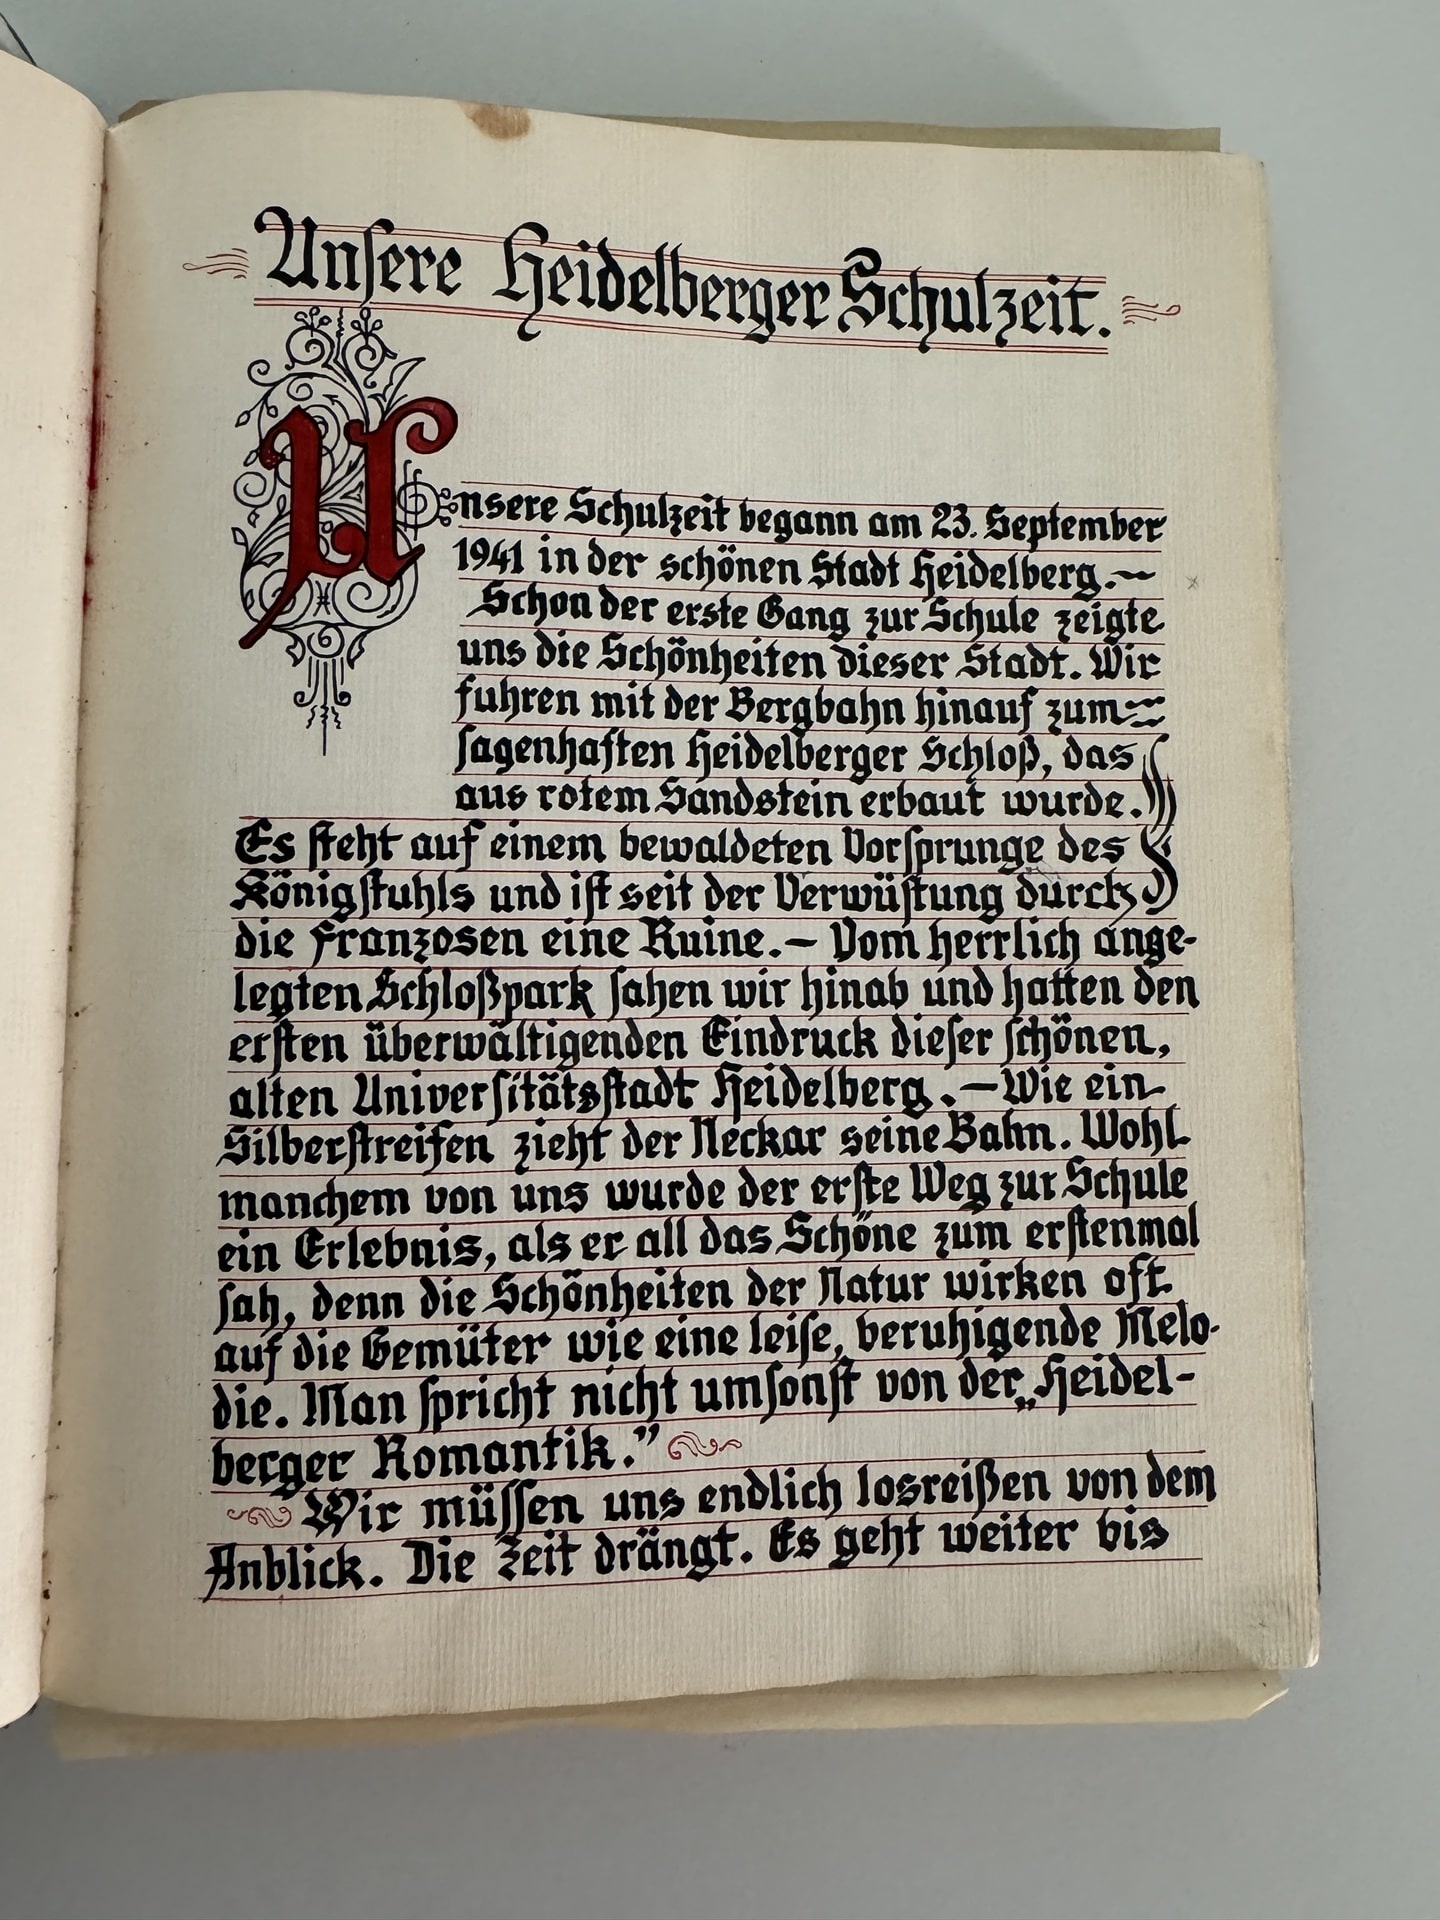 Unsere Heidelberger Schulzeit.
Unsere Schulzeit begann am 23. September
1941 in der schönen Stadt Heidelberg.—
Schon der erste Gang zur Schule zeigte
uns die Schönheiten dieser Stadt. Wir
fuhren mit der Bergbahn hinauf zum
sagenhaften Heidelberger Schloß, das
aus rotem Sandstein erbaut wurde.
Es steht auf einem bewaldeten Vorsprunge des
Königstuhls und ist seit der Verwüstung durch
die Franzosen eine Ruine.— Vom herrlich ange-
legten Schloßpark sahen wir hinab und hatten den
ersten überwältigenden Eindruck dieser schönen,
alten Universitätsstadt Heidelberg.— Wie ein
Silberstreifen zieht der Neckar seine Bahn. Wohl
manchem von uns wurde der erste Weg zur Schule
ein Erlebnis, als er all das Schöne zum erstenmal
sah, denn die Schönheiten der Natur wirken oft
auf die Gemüter wie eine leise, beruhigende Melo-
die. Man spricht nicht umsonst von der „Heidel-
berger Romantik."
Wir müssen uns endlich losreißen von dem
Anblick. Die Zeit drängt. Es geht weiter bis